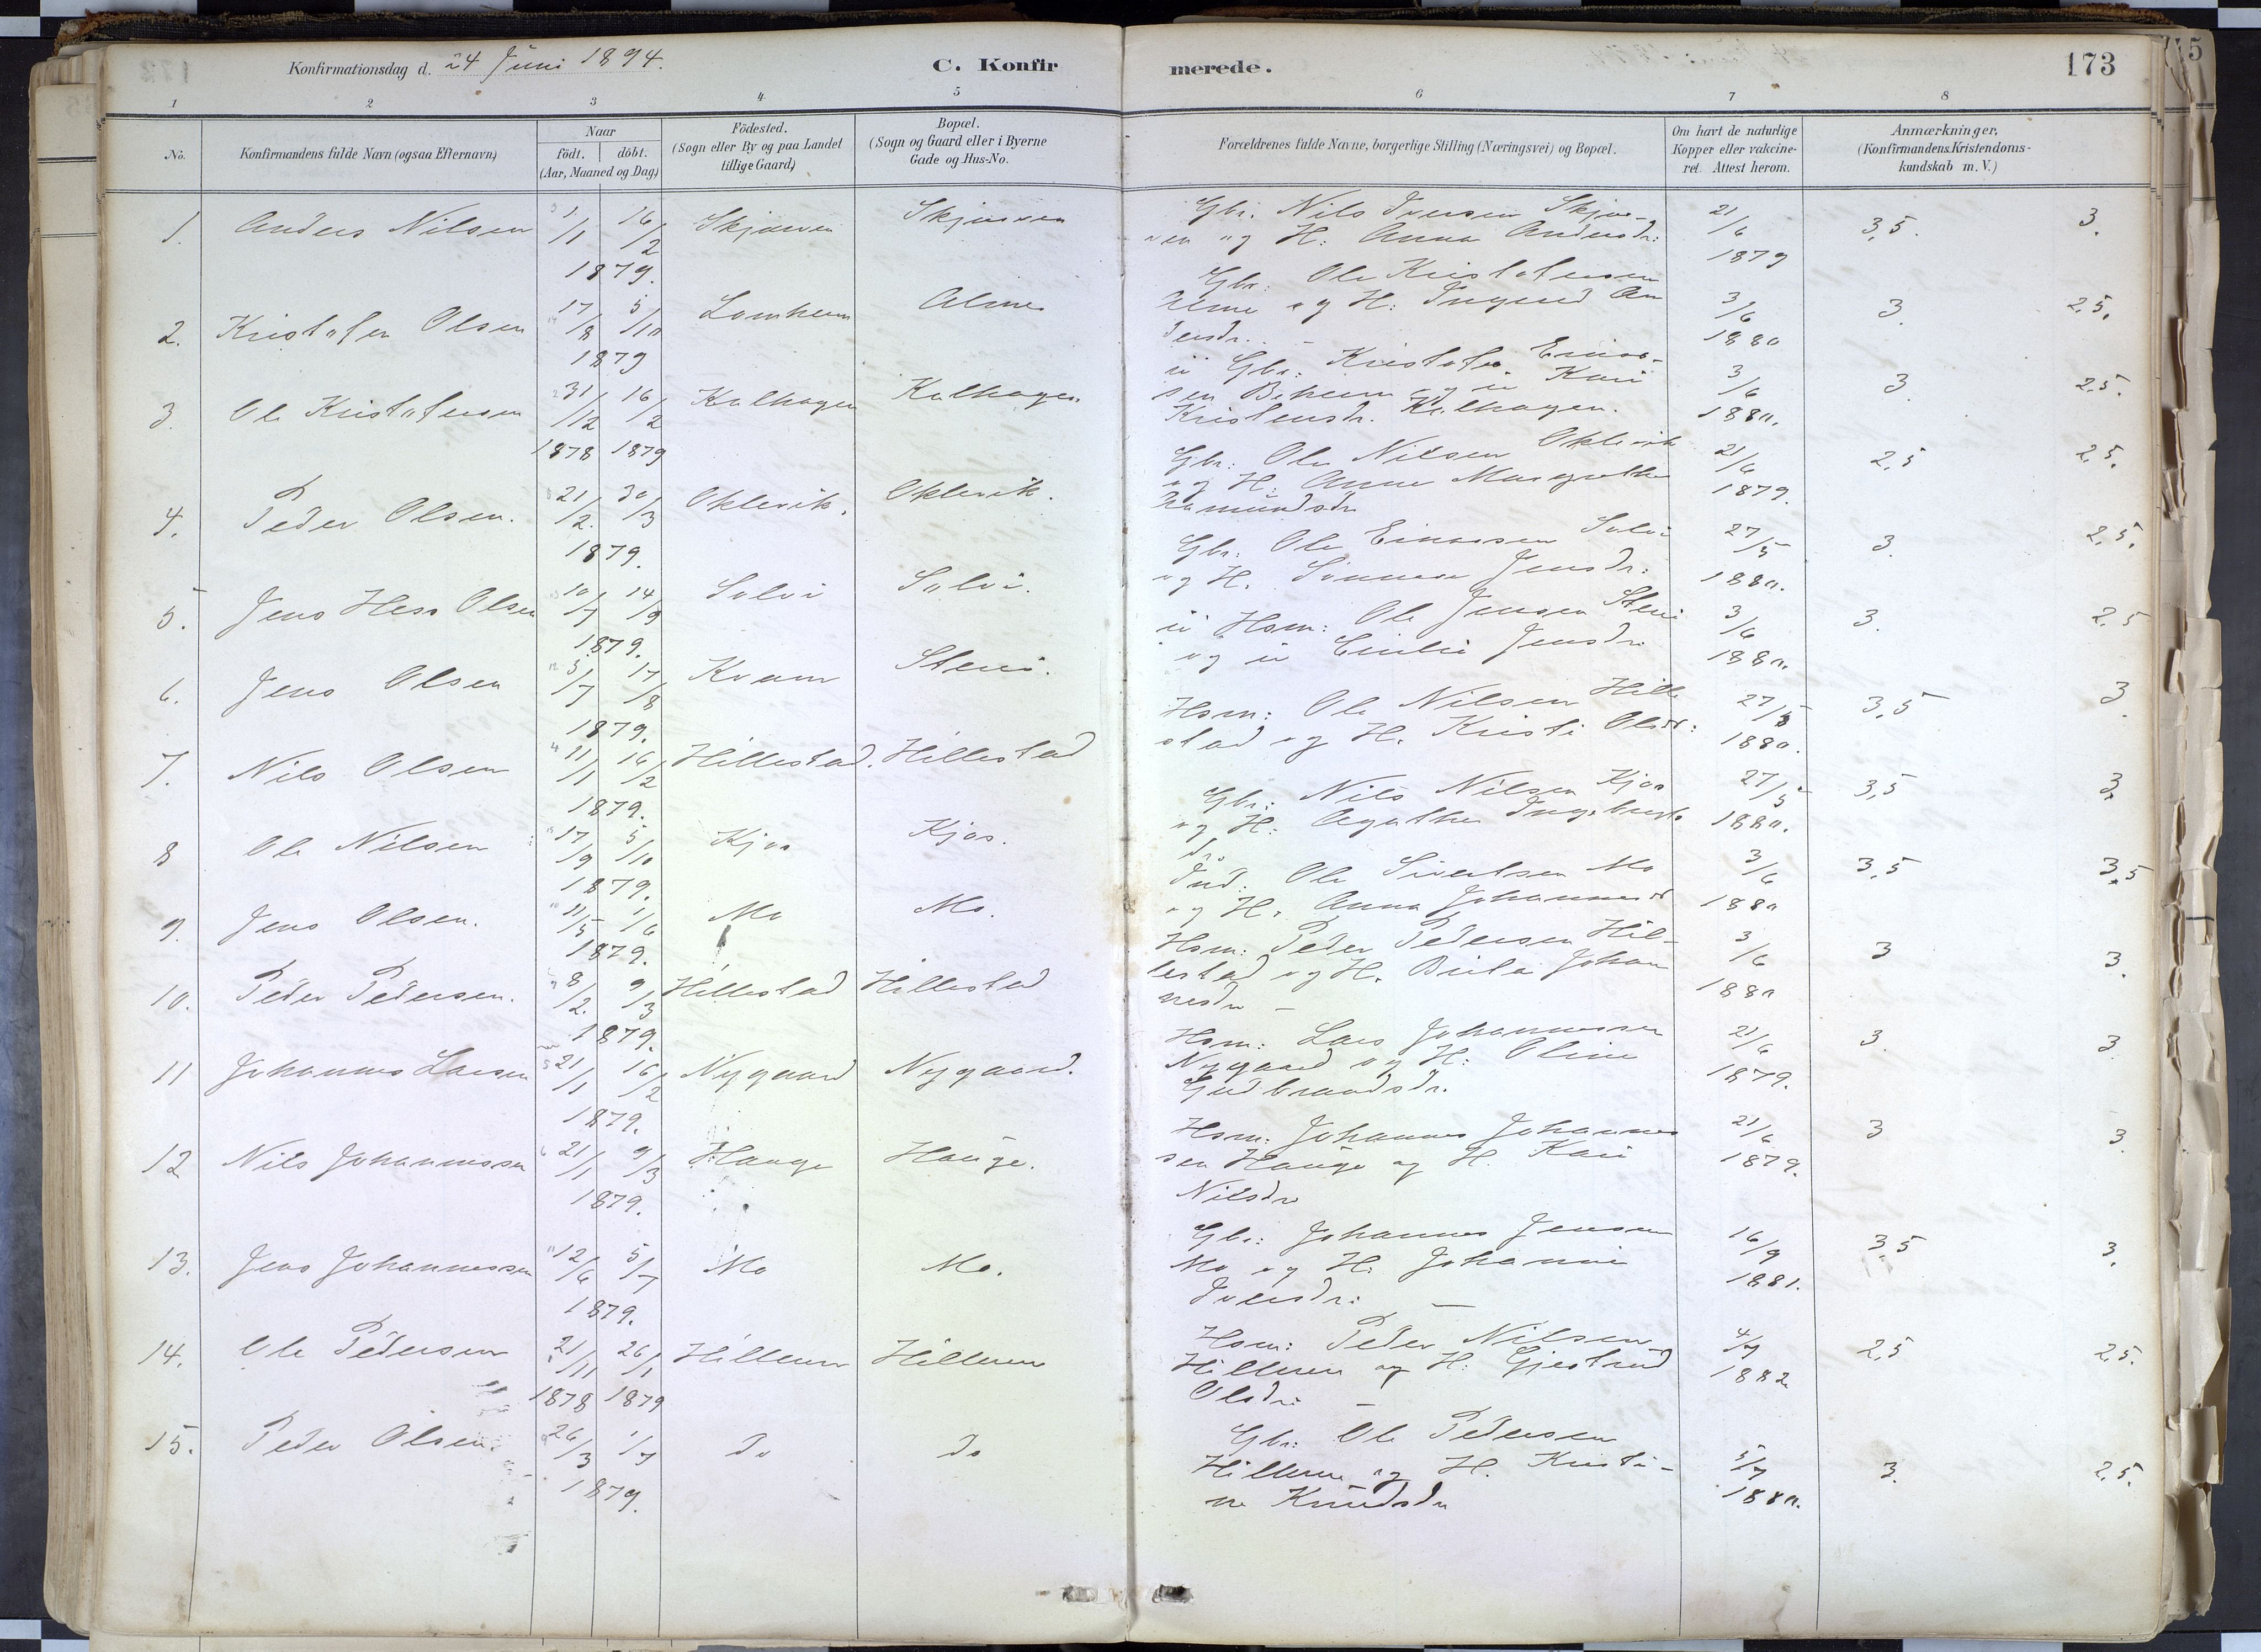 Konfirmationsdag d. 24 Juni 1894.
C. Konfir
merede.
173
1 2 3 4 5 6 7 8
No.
Konfirmandens fulde Navn (ogsaa Efternavn)
Naar
födt. döbt.
(Aar, Maaned og Dag)
Födested.
(Sogn eller By og paa Landet
tillige Gaard)
Bopæl.
(Sogn og Gaard eller i Byerne
Gade og Hus-No.
Forældrenes fulde Navne, borgerlige Stilling (Næringsvei) og Bopæl.
Om havt de naturlige
Kopper eller vakcine-
ret. Attest herom.
Anmærkninger,
(Konfirmandens Kristendoms-
kundskab m. V.)
1. Anders Nilsen 16/2 1879. Skjerven Skjerven
Gbr. Nils Iversen Skjer-
ven og H: Anna Andersdr: 21/6 1879 3,5. 3.
2. Kristofer Olsen 17/8 5/10 1879 Lomheim Alme
Gbr: Ole Kristofersen
Alme og H: Ingerid An
dersdr. 3/6 1880 3. 2,5.
3. Ole Kristofersen 31/12 1878 16/2 1879 Kalhagen Kalhagen
u Gbr: Kristofer
sen og u Kari
Kristensdr. Kalhagen. 3/6 1880. 3. 2,5.
4. Peder Olsen. 21/2. 30/3 1879. Oklevik. Oklevik.
Gbr: Ole Nilsen Oklevik
og H: Anne Margrethe
21/6 1879. 2,5 2,5.
5. Jens Hess Olsen 10/7 14/9 1879. Solvi Solvi.
Gbr: Ole Einarsen Solvi
og H. Sünneva Jensdr: 27/5 1880. 3. 2,5.
6. Jens Olsen 5/7 17/8 1879. Kvam Steni.
u Hsm: Ole Jensen Steni
og u Emilie Jensdr: 3/6 1880. 3. 2,5
7. Nils Olsen 11/1 16/2 1879. Hillestad. Hillestad
Hsm: Ole Nilsen Hille
stad og H. Kristi Olsdr: 27/5 1880. 3,5 3.
8 Ole Nilsen 17/9 5/10 1879. Kjos Kjos.
Gbr: Nils Nilsen Kjos
og H: Agathe Ingebrets
dr. 27/5 1880. 3,5 3.
9. Jens Olsen. 11/5 1/6 1879. Mo Mo.
Ind: Ole Sivertsen Mo
og H. Anna Johannesdr 3/6 1880 3,5 3,5
10. Peder Pedersen. 8/2. 9/3 1879. Hillestad Hillestad
Hsm: Peder Pedersen Hil-
lestad og H. Brita Johan
nesdr 3/6 1880 3 3.
11 Johannes Larsen 21/1 16/2 1879. Nygaard Nygaard.
Hsm: Lars Johannessen
Nygaard og H: Oline
Gudbrandsdr. 21/6 1879. 3. 3.
12 Nils Johannessen 21/1 9/3 1879. Hauge Hauge.
Hsm. Johannes Johannes
sen Hauge og H. Kari
Nilsdr 21/6 1879. 3 3.
13. Jens Johannessen 12/6 5/7 1879. Mo Mo.
Gbr: Johannes Jensen
Mo og H: Johanne
Iversdr: 16/9 1881. 3,5 3.
14. Ole Pedersen 21/11 1878 26/1 1879 Hilleren Hilleren
Hsm: Peder Nilsen
Hilleren og H: Gjertrud
Olsdr: 4/7 1882 2,5 2,5.
15. Peder Olsen. 26/3 1/7 1879. do do
Gbr: Ole Pedersen
Hilleren og H. Kristi-
ne Knudsdr 5/7 1880. 3. 2,5.